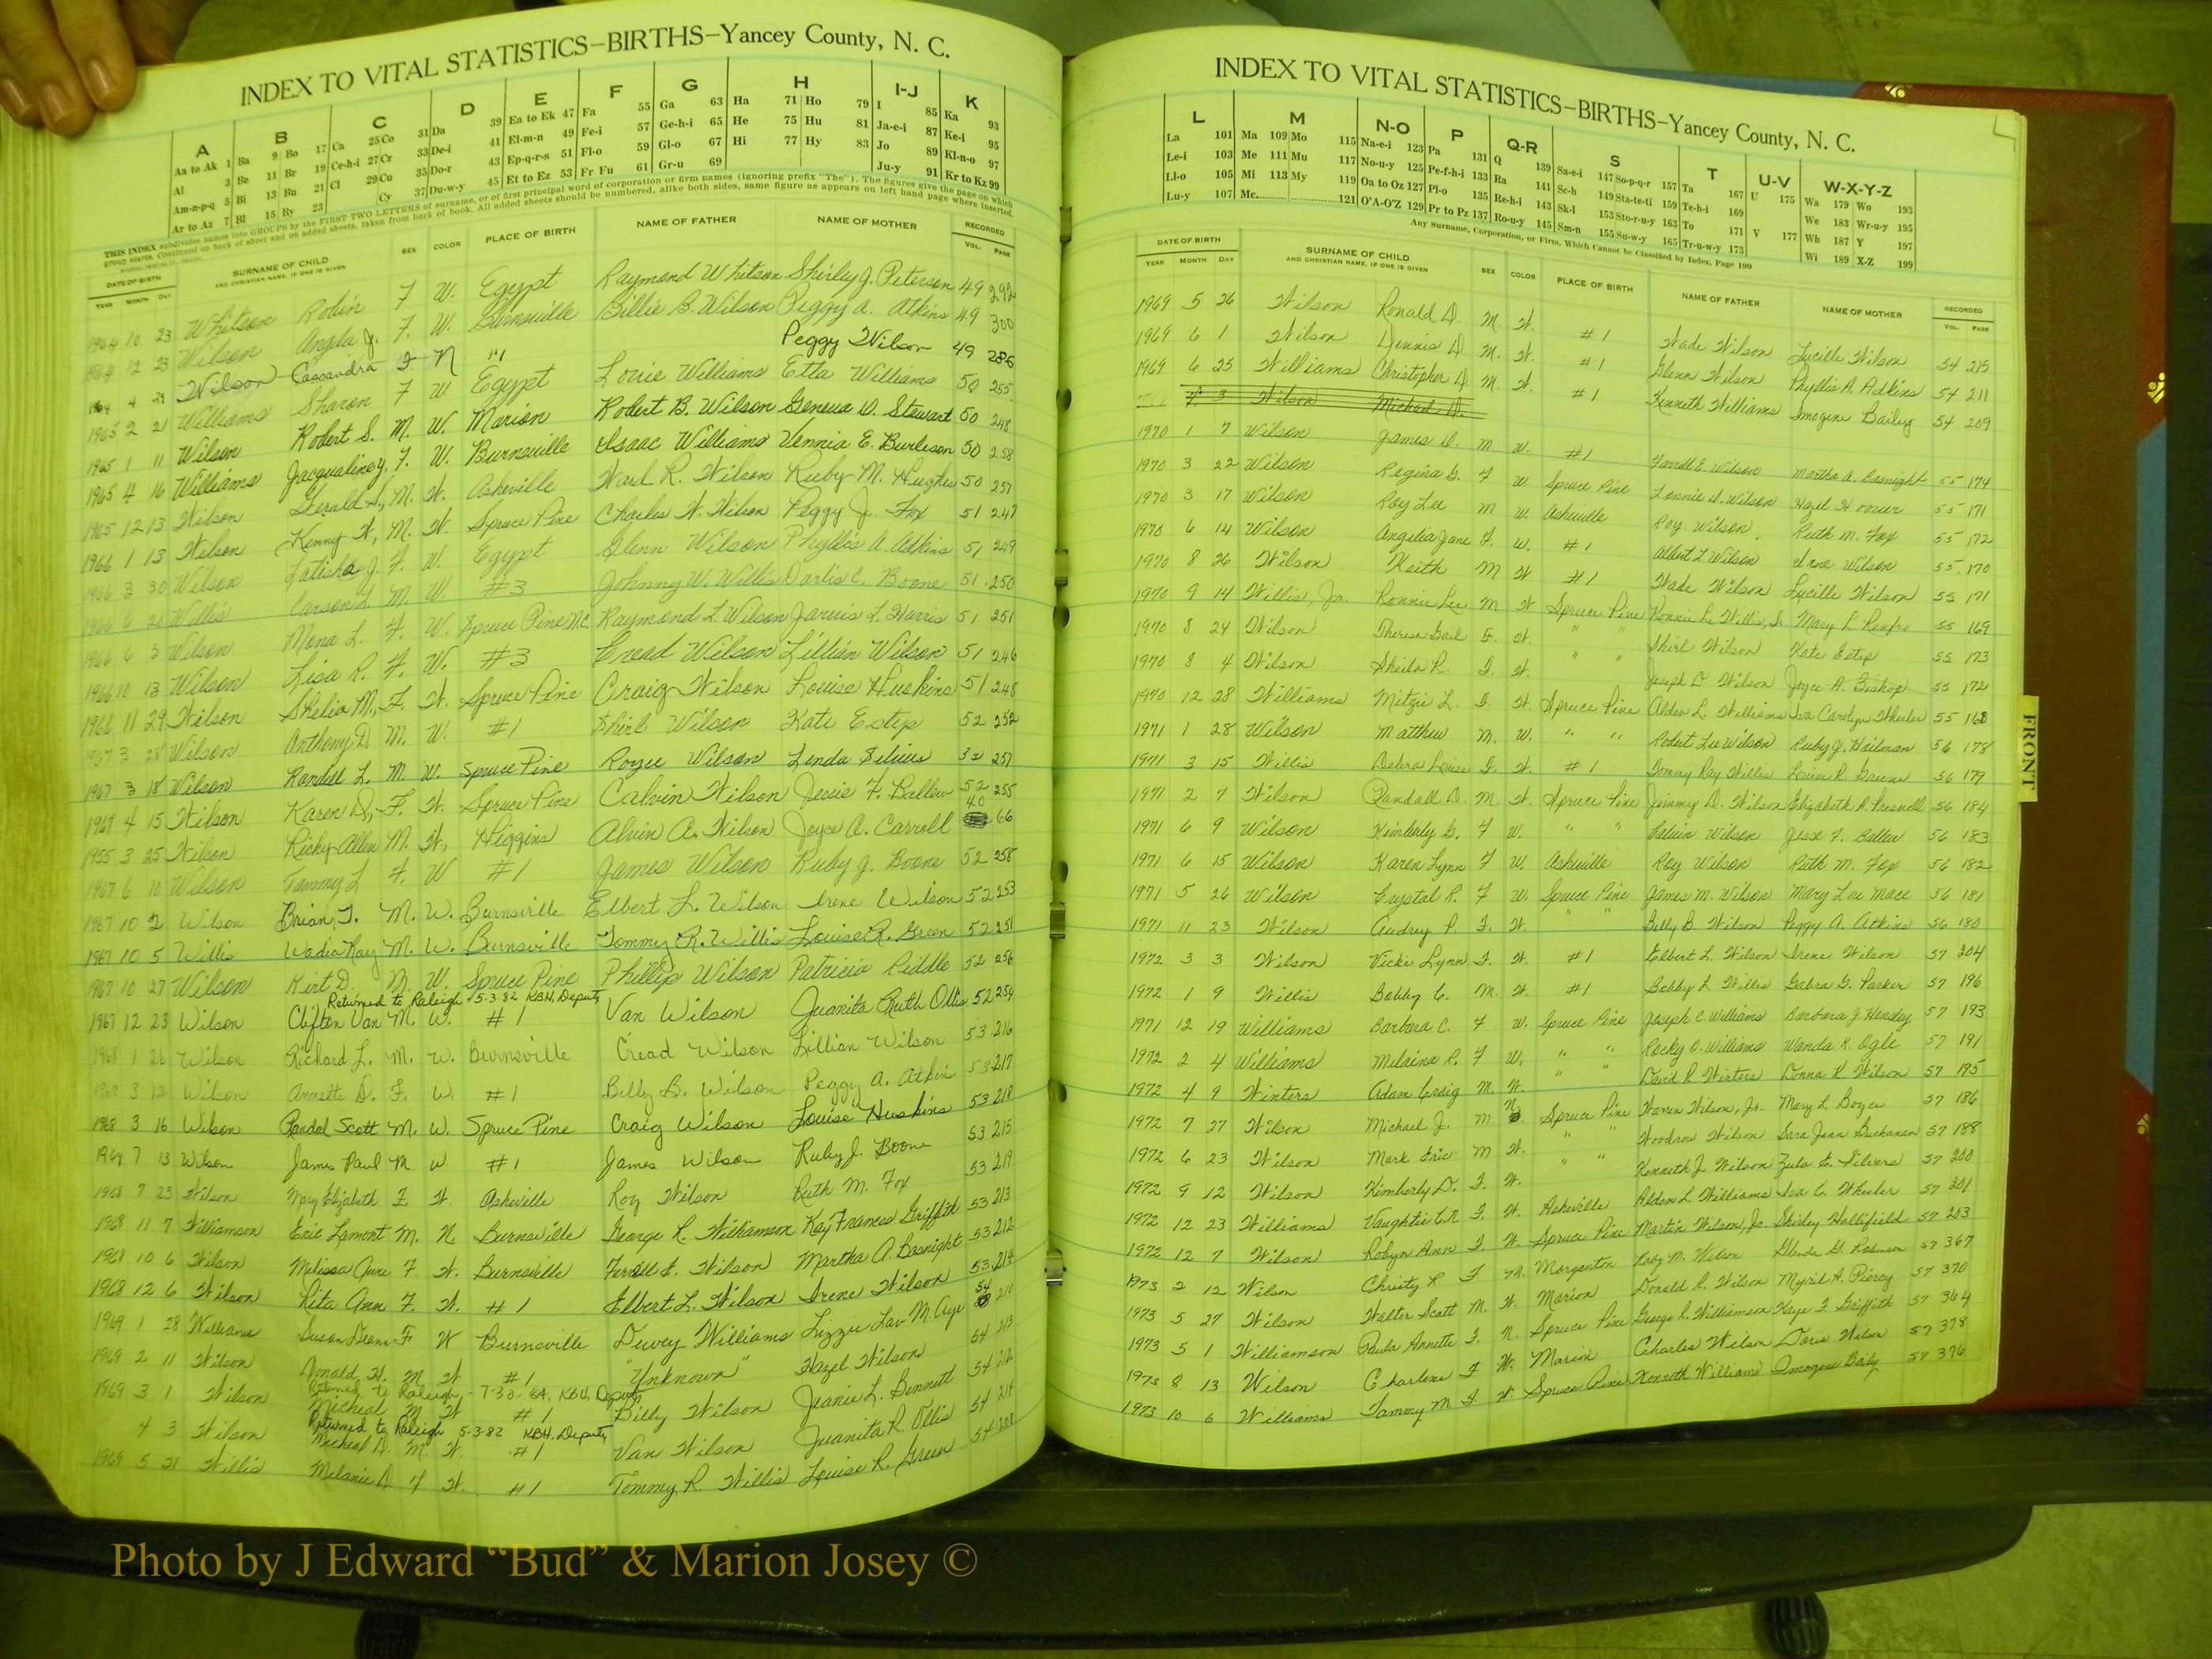 INDEX TO VITAL STATISTICS–BIRTHS–Yancey County, N. C.
A B C D E F G H I-J K
Aa to Ak 1 Ba 9 Bo 17 Ca 25 Co 31 Da 39 Ea to Ek 47 Fa 55 Ga 63 Ha 71 Ho 79 I 85 Ka 93
Al 3 Be 11 Br 19 Ce-h-i 27 Cr 33 De-i 41 El-m-n 49 Fe-i 57 Ge-h-i 65 He 75 Hu 81 Ja-e-i 87 Ke-i 95
Am-n-p-q 5 Bi 13 Bu 21 Cl 29 Cu 35 Do-r 43 Ep-q-r-s 51 Fl-o 59 Gl-o 67 Hi 77 Hy 83 Jo 89 Kl-n-o 97
Ar to Az 7 Bl 15 By 23 Cy 37 Du-w-y 45 Et to Ez 53 Fr Fu 61 Gr-u 69 Ju-y 91 Kr to Kz 99
THIS INDEX subdivides names into GROUPS by the FIRST TWO LETTERS of surname, or of first principal word of corporation or firm names (ignoring prefix "The"). The figures give the page on which
group starts. Continued on back of sheet and on added sheets, taken from back of book. All added sheets should be numbered, alike both sides, same figure as appears on left hand page where inserted.
DATE OF BIRTH SURNAME OF CHILD SEX COLOR PLACE OF BIRTH NAME OF FATHER NAME OF MOTHER RECORDED
YEAR MONTH DAY AND CHRISTIAN NAME, IF ONE IS GIVEN VOL. PAGE
1964 10 23 Whitson Robin F W. Egypt Raymond Whitson Shirley J. Peterson 49 292
1964 12 23 Wilson Angela J. F. W. Burnsville Billie B. Wilson Peggy A. Atkins 49 300
4 Wilson Cassandra F N " Peggy Wilson 49 286
1965 2 21 Williams Sharon F W Egypt Louie Williams Etta Williams 50 255
1965 1 11 Wilson Robert S. M. W. Marion Robert B. Wilson Geneva D. Stewart 50 248
1965 4 16 Williams Jacqualine F. W. Burnsville Isaac Williams Vennia E. Burleson 50 258
1965 12 13 Wilson Gerald S. M. W. Asheville Ward R. Wilson Ruby M. Hughes 50 257
1966 1 13 Wilson Kenny W. M. W. Spruce Pine Charles W. Wilson Peggy J. Fox 51 247
1966 3 30 Wilson Latisha J. F. W. Egypt Glenn Wilson Phyllis A. Adkins 51 249
1966 6 20 Willis Carson L. M. W. #3 Johnny W. Willis Darlis C. Boone 51 250
1966 6 5 Wilson Mona L. F. W. Spruce Pine NC Raymond L. Wilson Jarvis L. Harris 51 251
1966 10 13 Wilson Lisa R. F. W. #3 Cread Wilson Lillian Wilson 51 246
1966 11 29 Wilson Shelia M. F. W. Spruce Pine Craig Wilson Louise Huskins 51 248
1967 3 28 Wilson Anthony D. M. W. #1 Shirl Wilson Kate Estep 52 252
1967 3 18 Wilson Randell L. M. W. Spruce Pine Royce Wilson Linda Silvers 257
1967 4 15 Wilson Karen D. F. W. Spruce Pine Calvin Wilson Jessie F. Ballew 52 255
1955 3 25 Wilson Ricky Allen M. W. Higgins Alvin A. Wilson Joyce A. Carroll 40 66
1967 6 10 Wilson Tammy L F. W #1 James Wilson Ruby J. Boone 52 258
1967 10 2 Wilson Brian T. M. W. Burnsville Elbert L. Wilson Irene Wilson 52 253
1967 10 5 Willis Wadia Kay M. W. Burnsville Tommy R. Willis Louise R. Green 52 251
1967 10 27 Wilson Kirt D. M. W. Spruce Pine Phillip Wilson Patricia Riddle 52 256
Returned to Raleigh 5-3-82 KBH, Deputy
1967 12 23 Wilson Clifton Van M. W. #1 Van Wilson Juanita Ruth Ollis 52 259
1968 1 26 Wilson Richard L. M. W. Burnsville Cread Wilson Lillian Wilson 53 216
1968 3 12 Wilson Annette D. F. W. #1 Billy B. Wilson Peggy A. Atkin 53 217
1968 3 16 Wilson Randal Scott M. W. Spruce Pine Craig Wilson Louise Huskins 53 218
1968 7 13 Wilson James Paul M W #1 James Wilson Ruby J. Boone 53 215
1968 7 23 Wilson Mary Elizabeth F. W. Asheville Roy Wilson Ruth M. Fox 53 219
1968 11 7 Williamson Eric Lamont M. N. Burnsville George R. Williamson Kay Frances Griffith 53 213
1968 10 6 Wilson Melissa Anne F W. Burnsville Ferrell E. Wilson Martha A. Basnight 53 212
1968 12 6 Wilson Rita Ann F. W. #1 Elbert L. Wilson Irene Wilson 53 214
1969 1 28 Williams Susan Deann F W Burnsville Dewey Williams Lizzie Lav 54 210
1969 2 11 Wilson Donald W. M W #1 "Unknown" Hazel Wilson 54 213
Returned to Raleigh - 7-30-84, KBH, Deputy
1969 3 1 Wilson Micheal M W #1 Billy Wilson Jeanie L. Bennett 54 212
Returned to Raleigh 5-3-82 KBH, Deputy
4 3 Wilson Micheal D. M. W. #1 Van Wilson Juanita R. Ollis 54 214
1969 5 21 Willis Melanie D. F. W. #1 Tommy R. Willis Louise R. Green 54 208
INDEX TO VITAL STATISTICS–BIRTHS–Yancey County, N. C.
L M N-O P Q-R S T U-V W-X-Y-Z
La 101 Ma 109 Mo 115 Na-e-i 123 Pa 131 Q 139 Sa-e-i 147 So-p-q-r 157 Ta 167 U 175 Wa 179 Wo 193
Le-i 103 Me 111 Mu 117 No-u-y 125 Pe-f-h-i 133 Ra 141 Sc-h 149 Sta-te-ti 159 Te-h-i 169 We 183 Wr-u-y 195
Ll-o 105 Mi 113 My 119 Oa to Oz 127 Pl-o 135 Re-h-i 143 Sk-l 153 Sto-r-u-y 163 To 171 V 177 Wh 187 Y 197
Lu-y 107 Mc 121 O'A-O'Z 129 Pr to Pz 137 Ro-u-y 145 Sm-n 155 Su-w-y 165 Tr-u-w-y 173 Wi 189 X-Z 199
Any Surname, Corporation, or Firm, Which Cannot be Classified by Index, Page 199
DATE OF BIRTH SURNAME OF CHILD SEX COLOR PLACE OF BIRTH NAME OF FATHER NAME OF MOTHER RECORDED
YEAR MONTH DAY AND CHRISTIAN NAME, IF ONE IS GIVEN VOL. PAGE
1969 5 26 Wilson Ronald D. M. W. #1 Wade Wilson Lucille Wilson 54 215
1969 6 1 Wilson Dennis D. M. W. #1 Glenn Wilson Phyllis A. Adkins 54 211
1969 6 25 Williams Christopher D. M. W. #1 Kenneth Williams Imogene Bailey 54 209
3 Wilson Micheal D.
1970 1 7 Wilson James D. M W. #1 Farrell E. Wilson Martha A. Basnight 55 174
1970 3 22 Wilson Regina G. F W Spruce Pine Lonnie D. Wilson Hazel Hoover 55 171
1970 3 17 Wilson Roy Lee M W. Asheville Roy Wilson Ruth M. Fox 55 172
1970 6 14 Wilson Angelia Jane F. W. #1 Albert L Wilson Irene Wilson 55 170
1970 8 26 Wilson Keith M W #1 Wade Wilson Lucille Wilson 55 171
1970 9 14 Willis, Jr. Ronnie Lee M W Spruce Pine Ronnie L. Willis, Sr. Mary L Renfro 55 169
1970 8 24 Wilson Theresa Gail F. W. " " Shirl Wilson Kate Estep 55 173
1970 8 4 Wilson Sheila R. F. W. " " Joseph D Wilson Joyce A. Bishop 55 172
1970 12 28 Williams Mitzie L. F. W. Spruce Pine Alden L. Williams Iva Carolyn Wheeler 55 168
1971 1 28 Wilson Matthew M. W. " " Robert Lee Wilson Ruby J. Heilman 56 178
1971 3 15 Willis Debra Louise F. W. #1 Tommy Ray Willis Louise R. Greene 56 179
1971 2 7 Wilson Randall D. M W. Spruce Pine Jimmy D. Wilson Elizabeth A. Presnell 56 184
1971 6 9 Wilson Kimberly G. F W. " " Calvin Wilson Jesse F. Ballew 56 183
1971 6 15 Wilson Karen Lynn F W. Asheville Roy Wilson Ruth M. Fox 56 182
1971 5 26 Wilson Crystal R. F W. Spruce Pine James M. Wilson Mary Lou Mace 56 181
1971 11 23 Wilson Audrey P. F. W. " " Billy B. Wilson Peggy A. Atkins 56 180
1972 3 3 Wilson Vicki Lynn F. W. #1 Elbert L. Wilson Irene Wilson 57 204
1972 1 9 Willis Bobby C. M. W. #1 Bobby L Willis Gabra G. Parker 57 196
1971 12 19 Williams Barbara C. F W. Spruce Pine Joseph C Williams Barbara J Hensley 57 193
1972 2 4 Williams Melaina R. F W. " " Rocky O. Williams Wanda K. Ogle 57 191
1972 4 9 Winters Adam Craig M. W. " " David R Winters Donna K. Wilson 57 195
1972 7 27 Wilson Michael J. M N Spruce Pine Waren Wilson, Jr. Mary L Boyce 57 186
1972 6 23 Wilson Mark Eric M W. " " Woodrow Wilson Sara Jean Buchanan 57 188
1972 9 12 Wilson Kimberly D. F. W. " " Kenneth J. Wilson Zula E. Silvers 57 200
1972 12 23 Williams Vaughtie C. R F. W. Asheville Alden L. Williams Iva C. Wheeler 57 201
1972 12 7 Wilson Robyn Ann F. W. Spruce Pine Martin Wilson, Jr. Shirley Hollifield 57 203
1973 2 12 Wilson Christy R F W. Morganton Roby M. Wilson Glenda G. Robinson 57 367
1973 5 27 Wilson Walter Scott M. W. Marion Donald R. Wilson Myrid A. Piercy 57 370
1973 5 1 Williamson Paula Annette F. N. Spruce Pine George R. Williamson Kaye F. Griffith 57 364
1973 8 13 Wilson Charlene F W. Marion Charles Wilson Doris Wilson 57 378
1973 10 6 Williams Tammy M F. W. Spruce Pine Kenneth Williams Imogene Baily 57 376
FRONT
Photo by J Edward “Bud” & Marion Josey ©